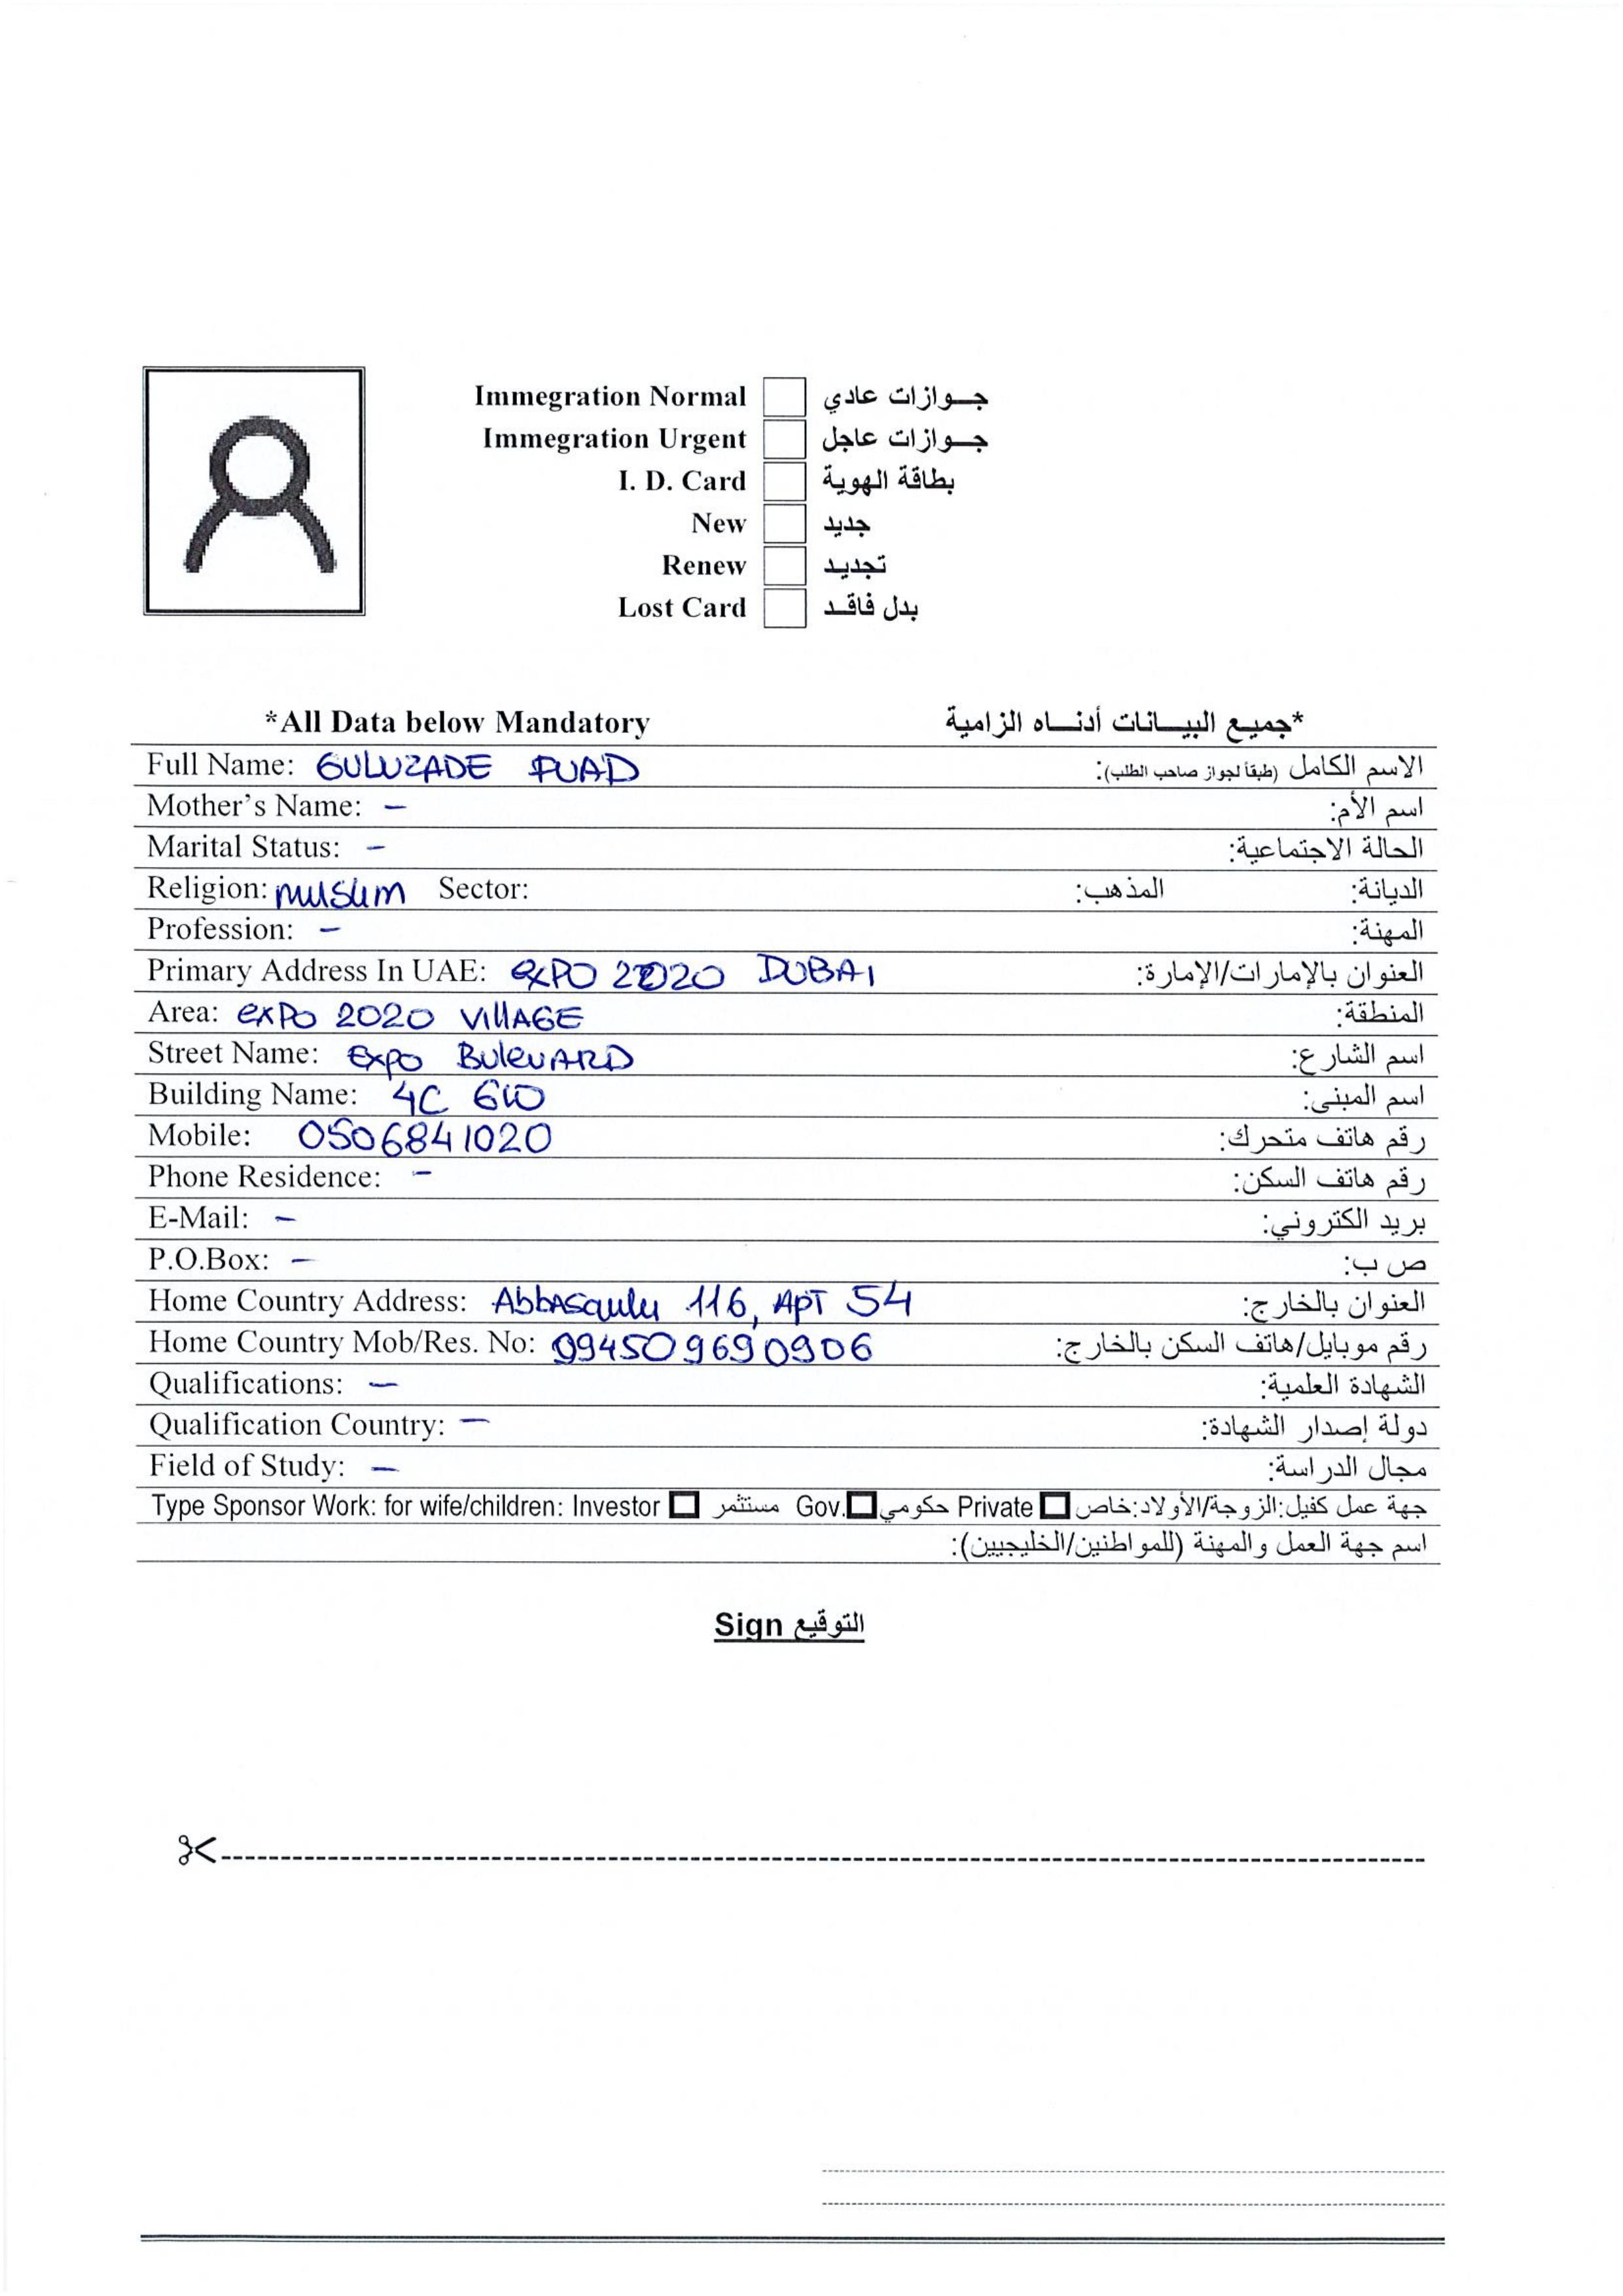 Immegration Normal جوازات عادي
Immegration Urgent جوازات عاجل
I. D. Card بطاقة الهوية
New جديد
Renew تجديد
Lost Card بدل فاقد
*All Data below Mandatory *جميع البيانات أدناه الزامية
Full Name: GULUZADE FUAD الاسم الكامل (طبقاً لجواز صاحب الطلب):
Mother's Name: – اسم الأم:
Marital Status: – الحالة الاجتماعية:
Religion: muslim Sector: الديانة: المذهب:
Profession: – المهنة:
Primary Address In UAE: EXPO 2020 DUBAI العنوان بالإمارات/الإمارة:
Area: EXPO 2020 VIllAGE المنطقة:
Street Name: Expo BulevARD اسم الشارع:
Building Name: 4C اسم المبنى:
Mobile: 0506841020 رقم هاتف متحرك:
Phone Residence: – رقم هاتف السكن:
E-Mail: – بريد الكتروني:
P.O.Box: – ص ب:
Home Country Address: 116, APT 54 العنوان بالخارج:
Home Country Mob/Res. No: 0994509690906 رقم موبايل/هاتف السكن بالخارج:
Qualifications: – الشهادة العلمية:
Qualification Country: – دولة إصدار الشهادة:
Field of Study: – مجال الدراسة:
Type Sponsor Work: for wife/children: Investor مستثمر Gov. حكومي Private خاص:جهة عمل كفيل:الزوجة/الأولاد
اسم جهة العمل والمهنة (للمواطنين/الخليجيين):
Sign التوقيع